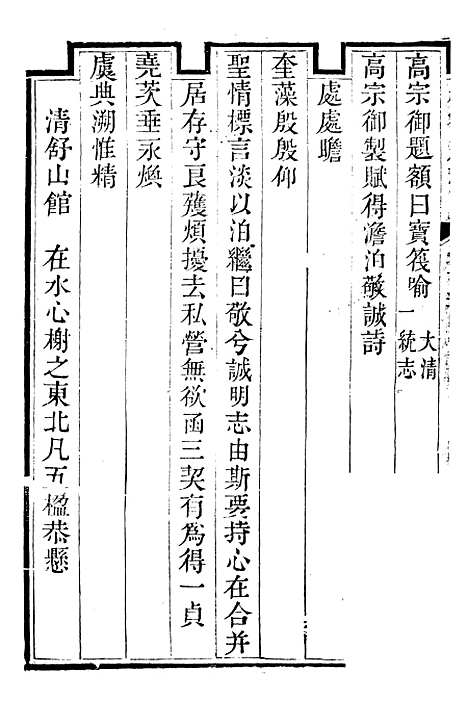 高宗御題額曰寶筏喻大清一統志
高宗御製賦得澹泊敬誠詩
處處瞻
奎藻殷殷仰
聖情標言淡以泊繼曰敬兮誠明志由斯要持心在合并
居存守良雘煩擾去私營無欲函三契有為得一貞
堯茨垂永煥
虞典溯惟精
清舒山館　在水心榭之東北凡五楹恭懸